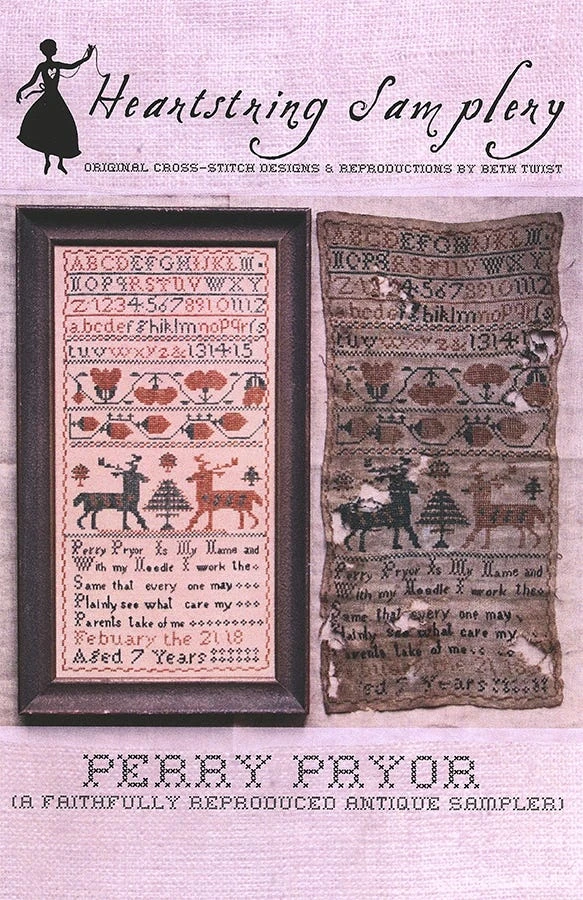 Heartstring Samplery
ORIGINAL CROSS-STITCH DESIGNS & REPRODUCTIONS BY BETH TWIST
ABCDEFGHIJKLM
NOPQRSTUVWXY
Z123456789101112
abcdefghiklmnopqrſs
tuvwxyz&131415
Perry Pryor Is My Name and
With my Needle I work the
Same that every one may
Plainly see what care my
Parents take of me
Febuary the 21 18
Aged 7 Years
ABCDEFGHIJKLM
NOPQRSTUVWXY
abcdef hiklmnopqrſs
tuvwxyz&1314
Perry Pryor Is My Name and
With my Needle I work the
Same that every one may
Plainly see what care my
Parents take of me
7 Years
PERRY PRYOR
(A FAITHFULLY REPRODUCED ANTIQUE SAMPLER)